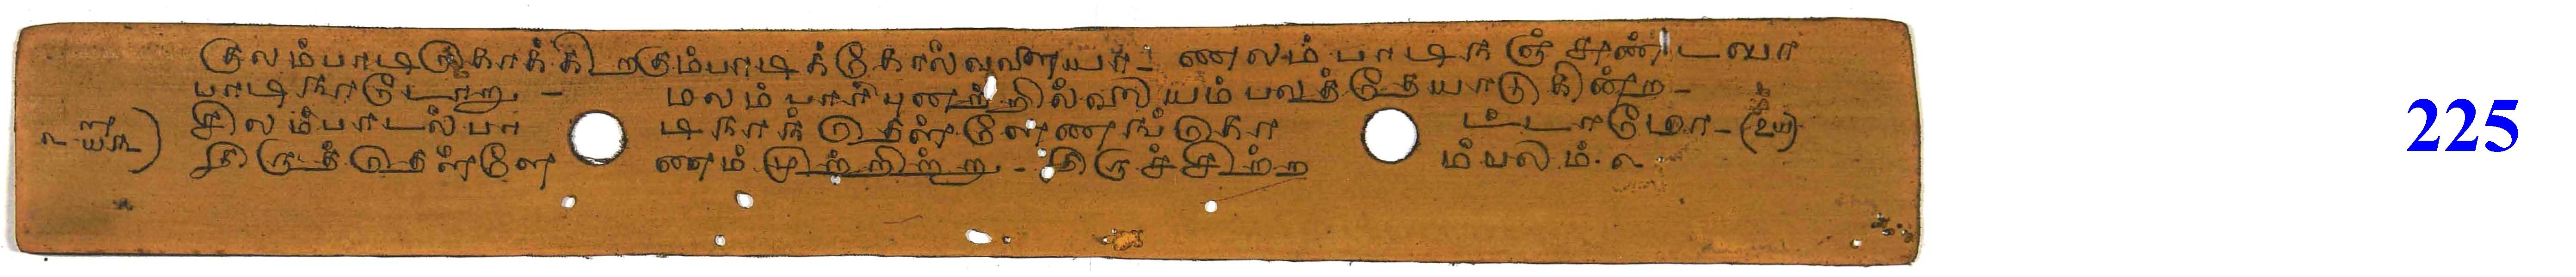 குலம்பாடிகொக்கிறகும்பாடிக்கோல்வளையா- ணலம்பாடிநஞ்சுண்டவா
பாடிநாடோறு - மலம்பார்புனற்றில்லையம்பலத்தேயாடுகின்ற-
சிலம்பாடல்பாடிநாந்தெள்ளேணங்கொட்டாமோ-(௨௰)
திருத்தெள்ளேணம் முற்றிற்று - திருச்சிற்றம்பலம்.
225